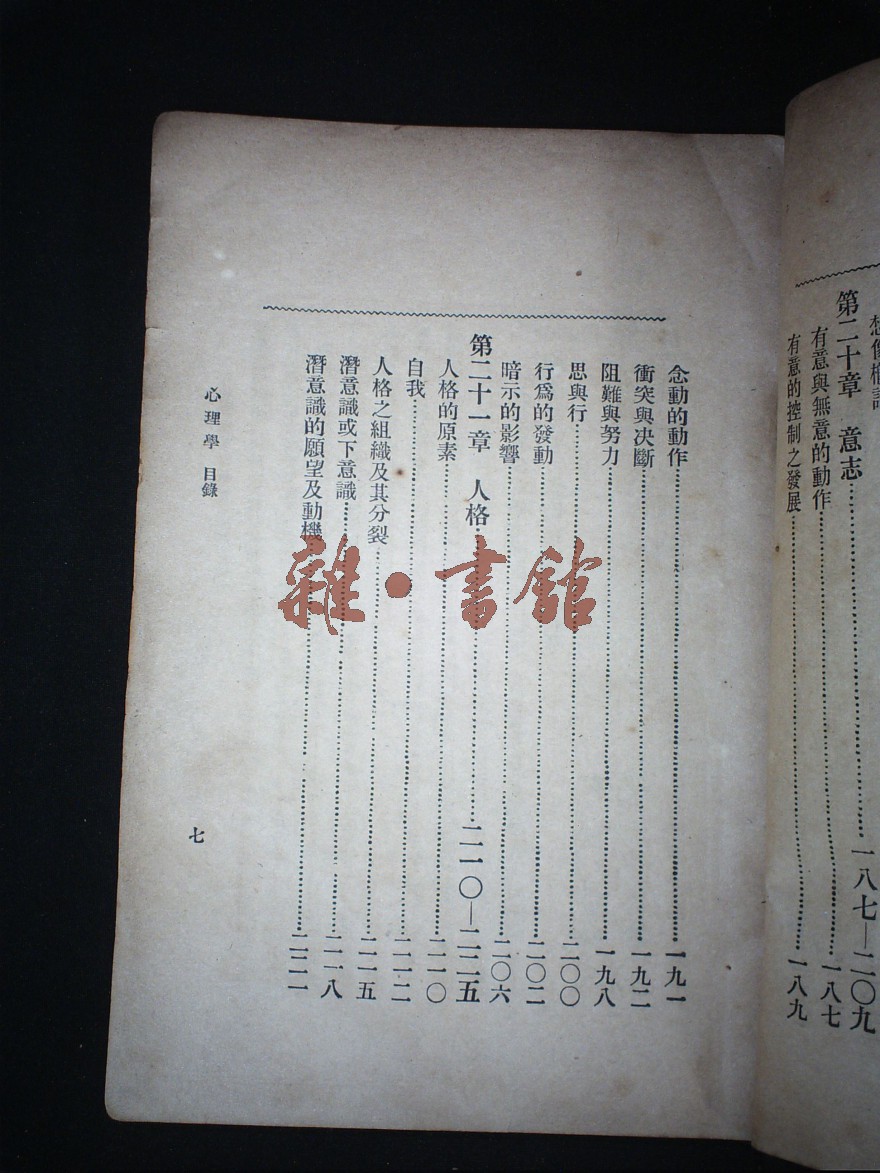 第二十章　意志…………一八七—二〇九
有意與無意的動作…………一八七
有意的控制之發展…………一八九
念動的動作…………一九一
衝突與決斷…………一九二
阻難與努力…………一九八
思與行…………二〇〇
行爲的發動…………二〇二
暗示的影響…………二〇六
第二十一章　人格…………二一〇—二二五
人格的原素…………二一〇
自我…………二一二
人格之組織及其分裂…………二一五
潛意識或下意識…………二一八
潛意識的願望及動機…………二二一
心理學　目錄
七
雜·書館